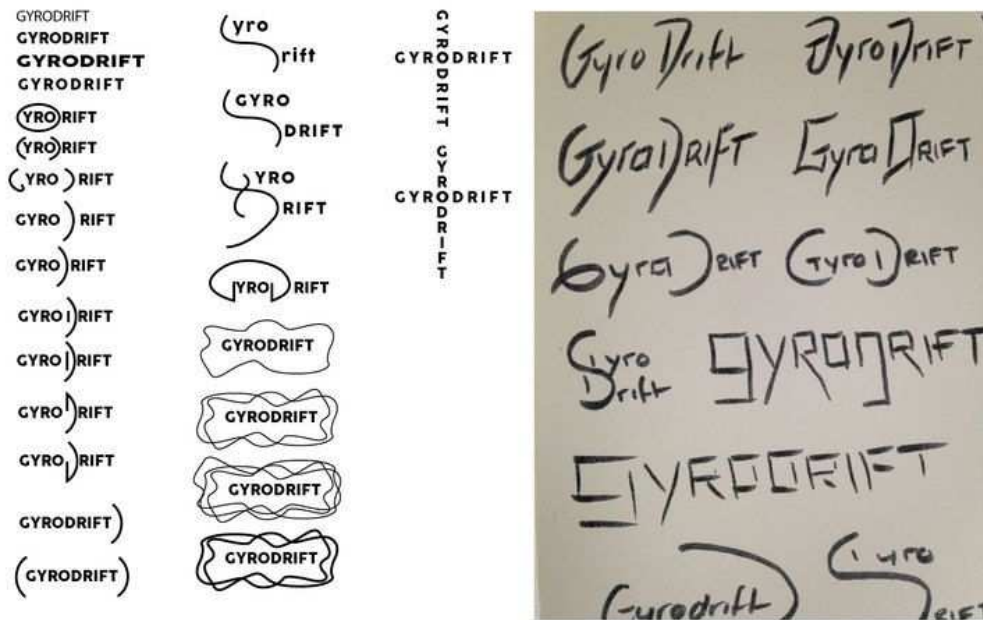 GYRODRIFT
GYRODRIFT
GYRODRIFT
GYRODRIFT
YRO RIFT
(YRO)RIFT
YRO ) RIFT
GYRO ) RIFT
GYRO)RIFT
GYRO I)RIFT
GYRO I)RIFT
GYRO RIFT
GYRO RIFT
GYRODRIFT)
(GYRODRIFT)
yro
rift
GYRO
DRIFT
YRO
RIFT
YRO RIFT
GYRODRIFT
GYRODRIFT
GYRODRIFT
GYRODRIFT
GYRODRIFT
GYRODRIFT
GYRODRIFT
GYRODRIFT
Gyro Drift
Gyro Drift
Gyro DRIFT
Gyro DRIFT
Gyro DRIFT
Gyro DRIFT
Gyro
Drift
gYRODRIFT
GYRODRIFT
Gyrodrift
Gyro
RIFT